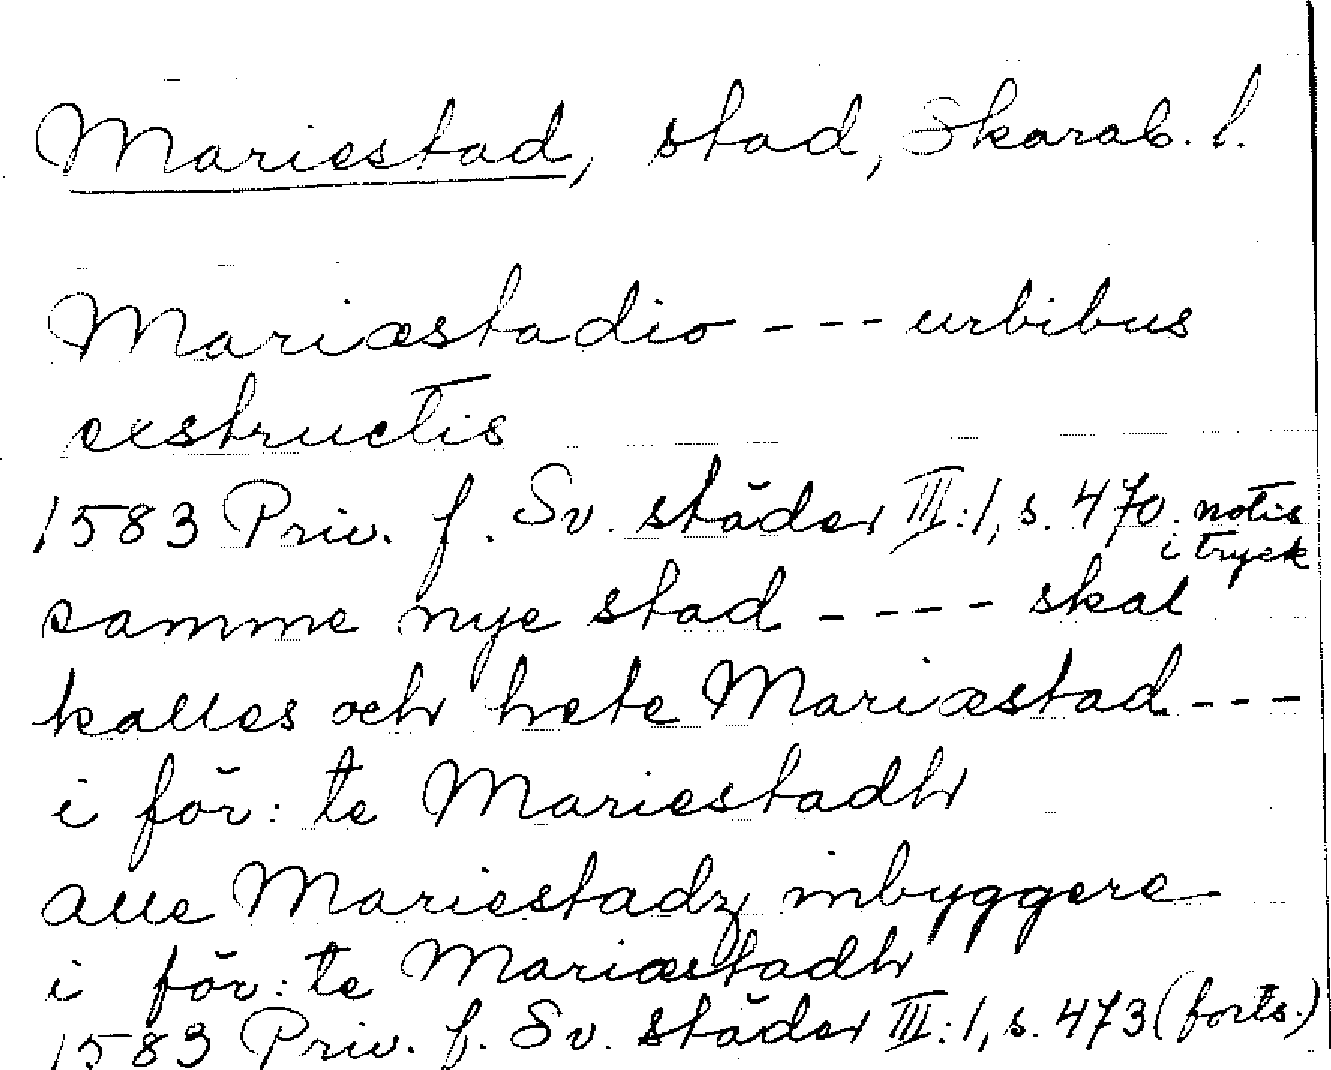 Mariestad, stad, Skarab. l.
Mariæstadio - - - urbibus
exstructis
1583 Priv. f. Sv. städer III:1, s. 470. notis
i tryck
samme nye stad - - - - skal
kalles och hete Mariæstad - - -
i för:te Mariestadh
alle Mariestadz inbyggere
i för:te Mariæstadh
1583 Priv. f. Sv. städer III:1, s. 473 (forts.)